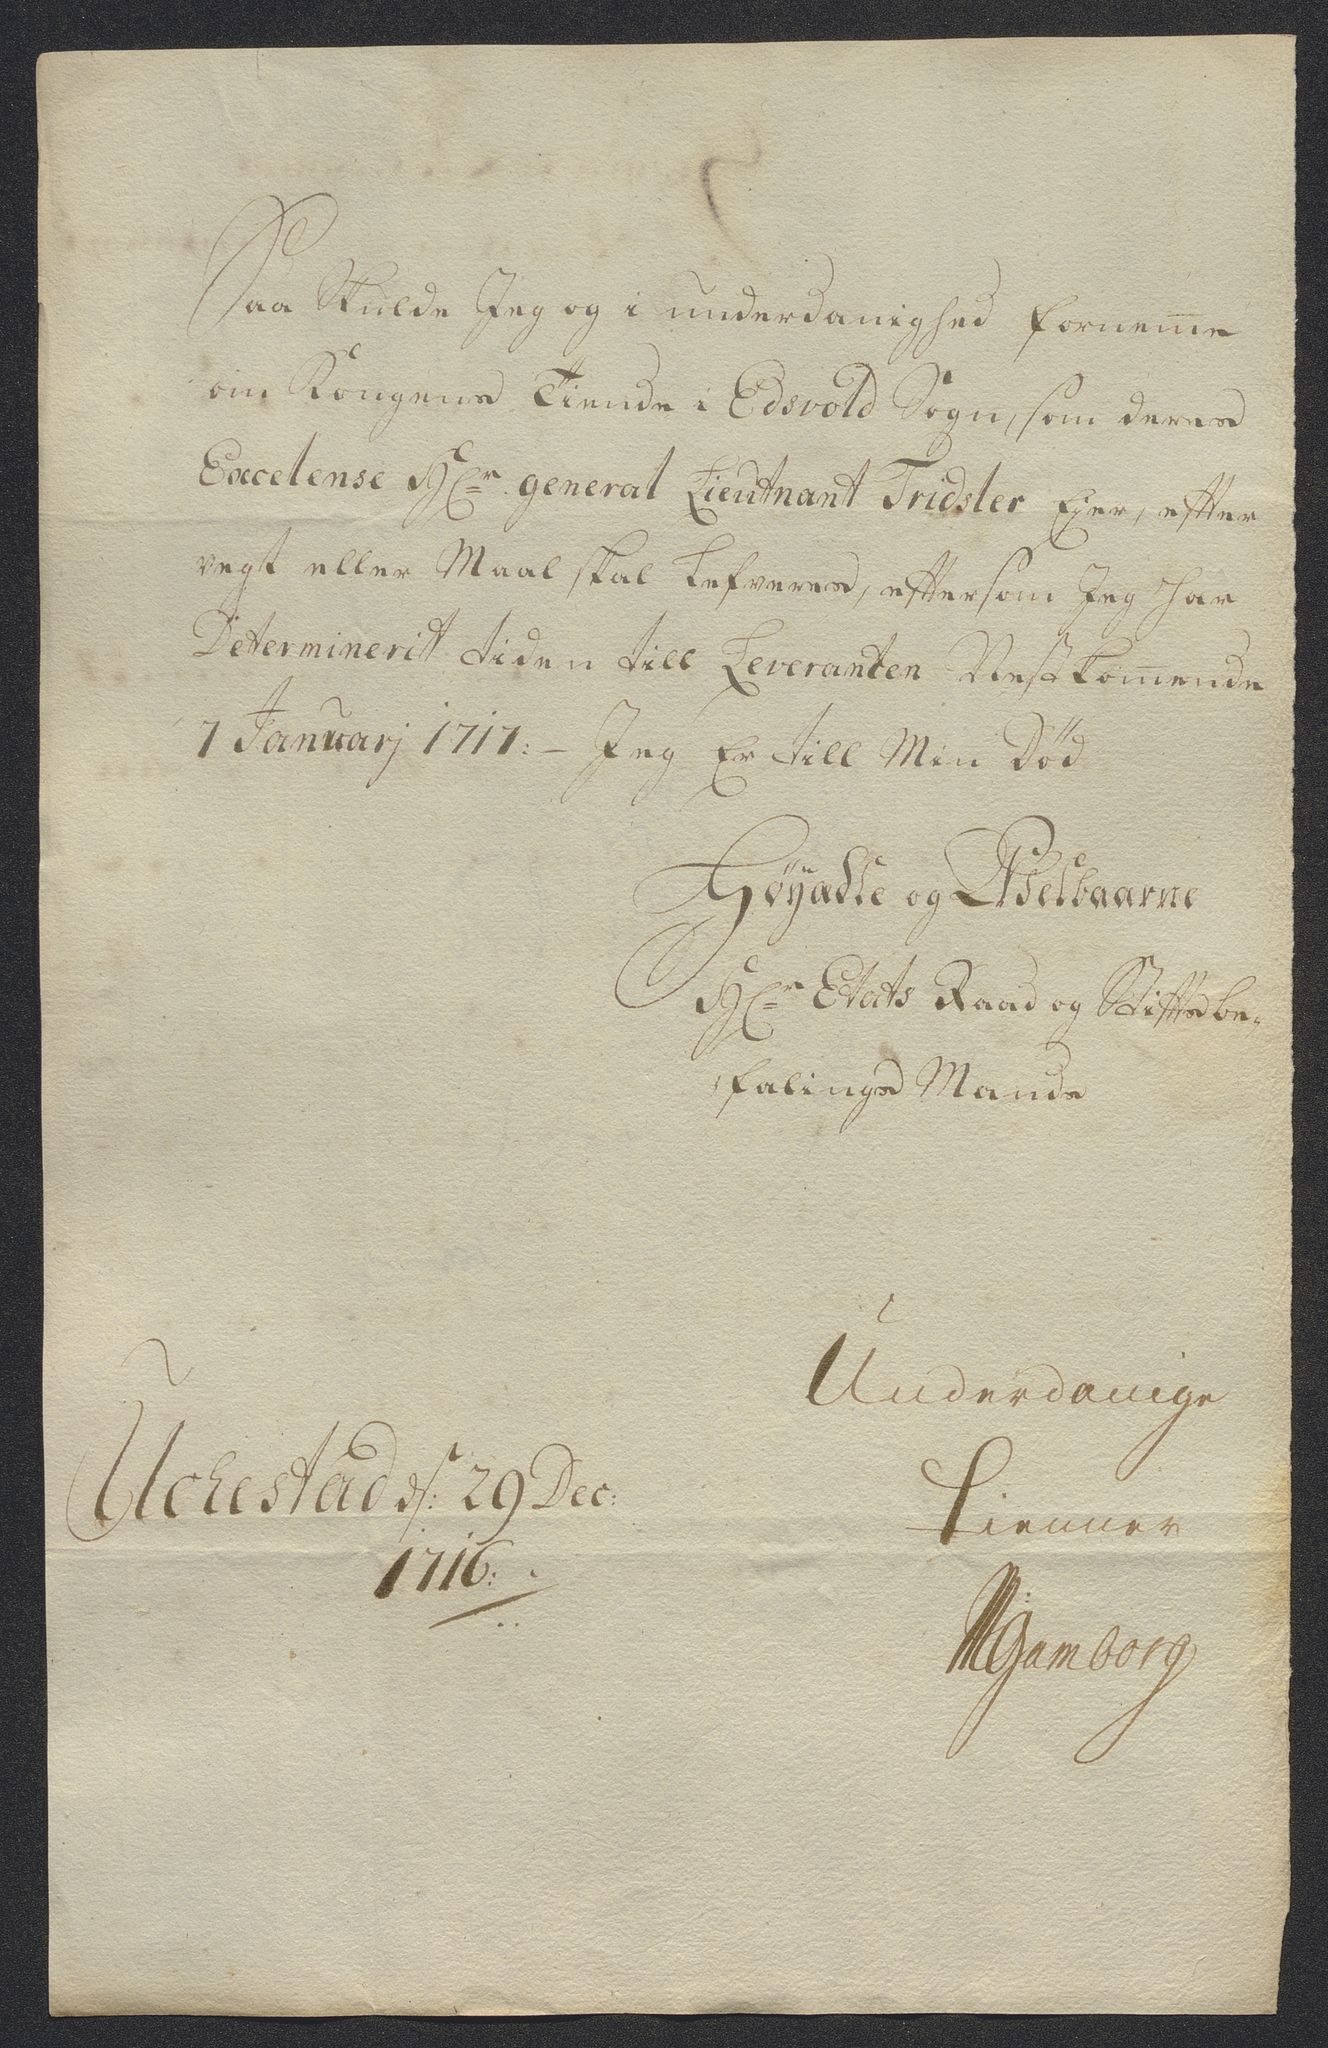 Saa Skulde Jeg og i underdanighed fornemme
om Kongens Tiende i Edsvold Sogn, som deres
Excelense H Er: general Lieutnant Tridsler Ejer, efter
vegt eller Maal skal Lefveres, eftersom Jeg har
Determineritt tiden till Leveranten Nestkommende
7 Januarj 1717:- Jeg Er till Min Død
Høÿadle og Adelbaarne
H Er: Etats Raad og Stiftsbe-
falings Mands
Underdanige
Tienner
Uckestad d: 29 Dec:
1716:
Gamborg